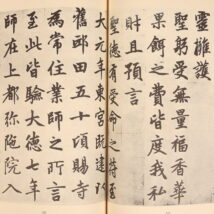 靈擁護
聖躬受無量福香華
果餌之費皆度我私
財且預言
聖德有受命之符至
大元年東宮既建以
舊邸田五十頃賜寺
為常住業師之所言
至此皆驗大德七年
師在上都彌陁院入